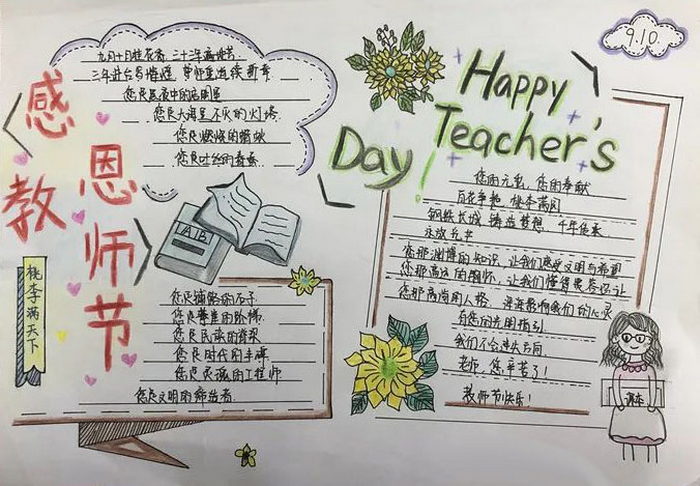 感恩教师节
桃李满天下
九月十日桂花香,三十二年画传芳
三年讲台写博通,尊师重道续新章
您是黑夜中的启明星
您是大海里不灭的灯塔
您是燃烧的蜡烛
您是吐丝的春蚕
A B
您是铺路的石子
您是攀登的阶梯
您是民族的脊梁
您是时代的丰碑
您是灵魂的工程师
您是文明的缔造者
9.10.
Happy
Teacher's
Day!
您的元气,您的奉献
百花争艳,桃李满园
钢练长成 铸造梦想,千年传承
您那渊博的知识,让我们感受文明与希望
您那高远的胸怀,让我们懂得
您那高尚的人格,深深影响我们的心灵
有您的光明指引
我们不会迷失方向
老师,您辛苦了!
教师节快乐!
课本